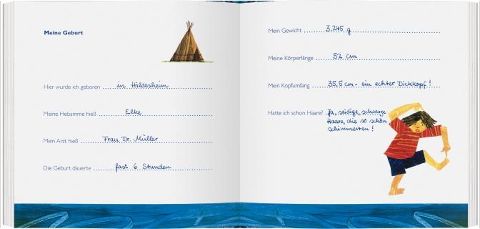 Meine Geburt
Hier wurde ich geboren in Hildesheim
Meine Hebamme hieß Elke
Mein Arzt hieß Frau Dr. Müller
Die Geburt dauerte fast 6 Stunden
Mein Gewicht 3.245 g
Meine Körperlänge 52 cm
Mein Kopfumfang 35,5 cm - ein echter Dickkopf!
Hatte ich schon Haare? Ja, seidige, schwarze
Haare, die so schön
schimmerten!